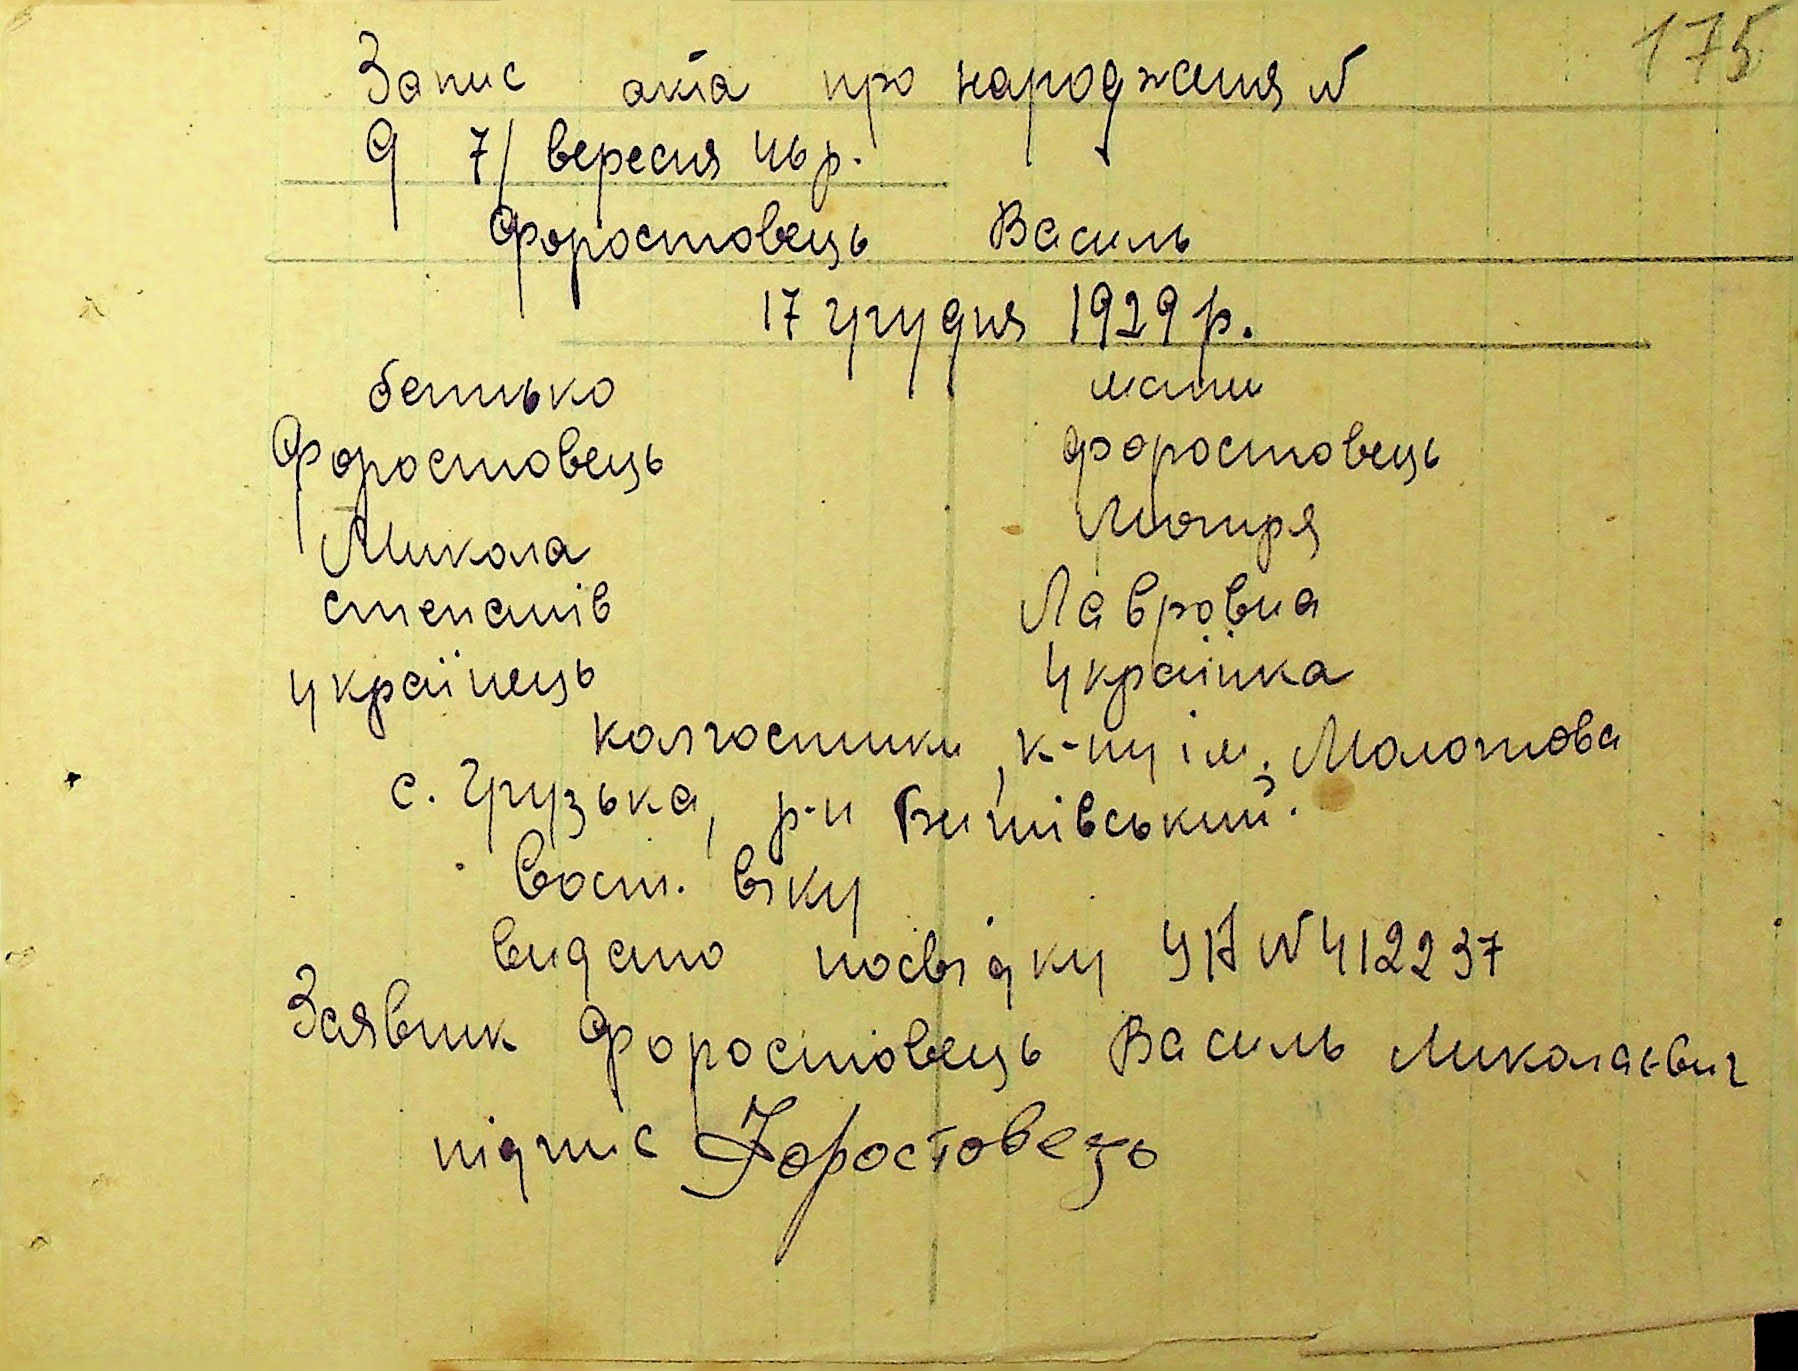 175
Запис акта про народження №
9 7/вересня 46 р.
Форостовець Василь
17 грудня 1929 р.
батько мати
Форостовець Форостовець
Микола Мотря
степанів Лавровна
українець Українка
колгоспники, к-пу ім. Молотова
с. Грузька, р-н Бишівський.
Вост. віку
видано посвідку УА № 412237
Заявник Форостовець Василь Миколаєвич
підпис Форостовець